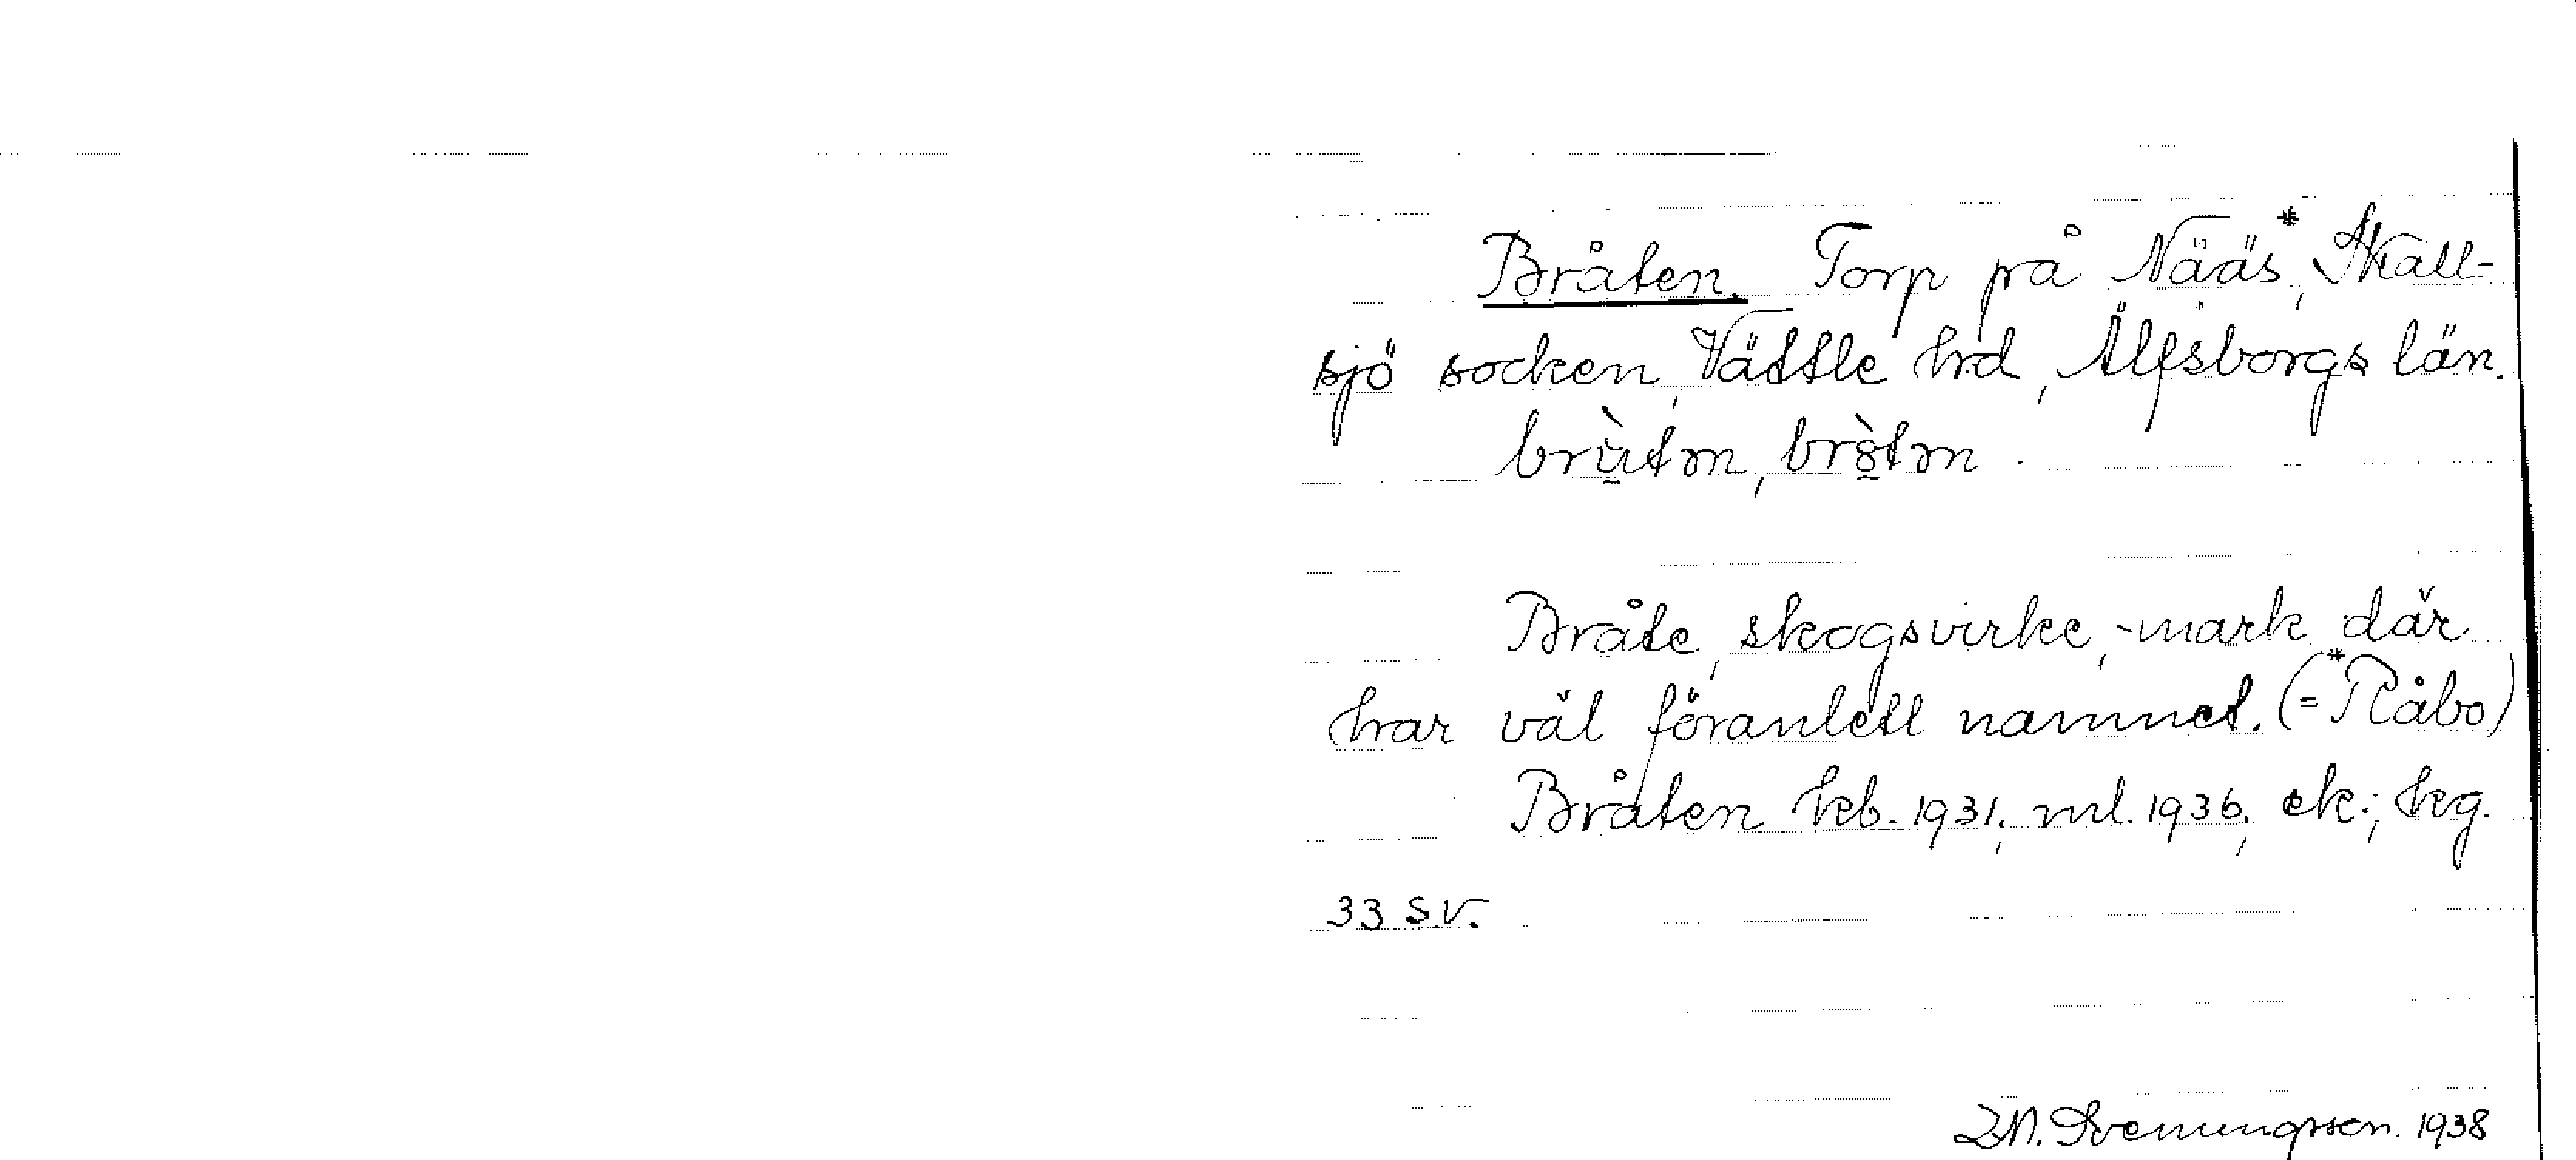 Bråten. Torp på Nääs*, Skall-
sjö socken, Vättle hrd, Älfsborgs län.
brùtən, bròtən.
Bråte, skogsvirke, -mark där
har väl föranlett namnet. (=*Råbo)
Bråten hfb. 1931, ml. 1936, ek.; hkg.
33 S.V.
Svenungsson. 1938